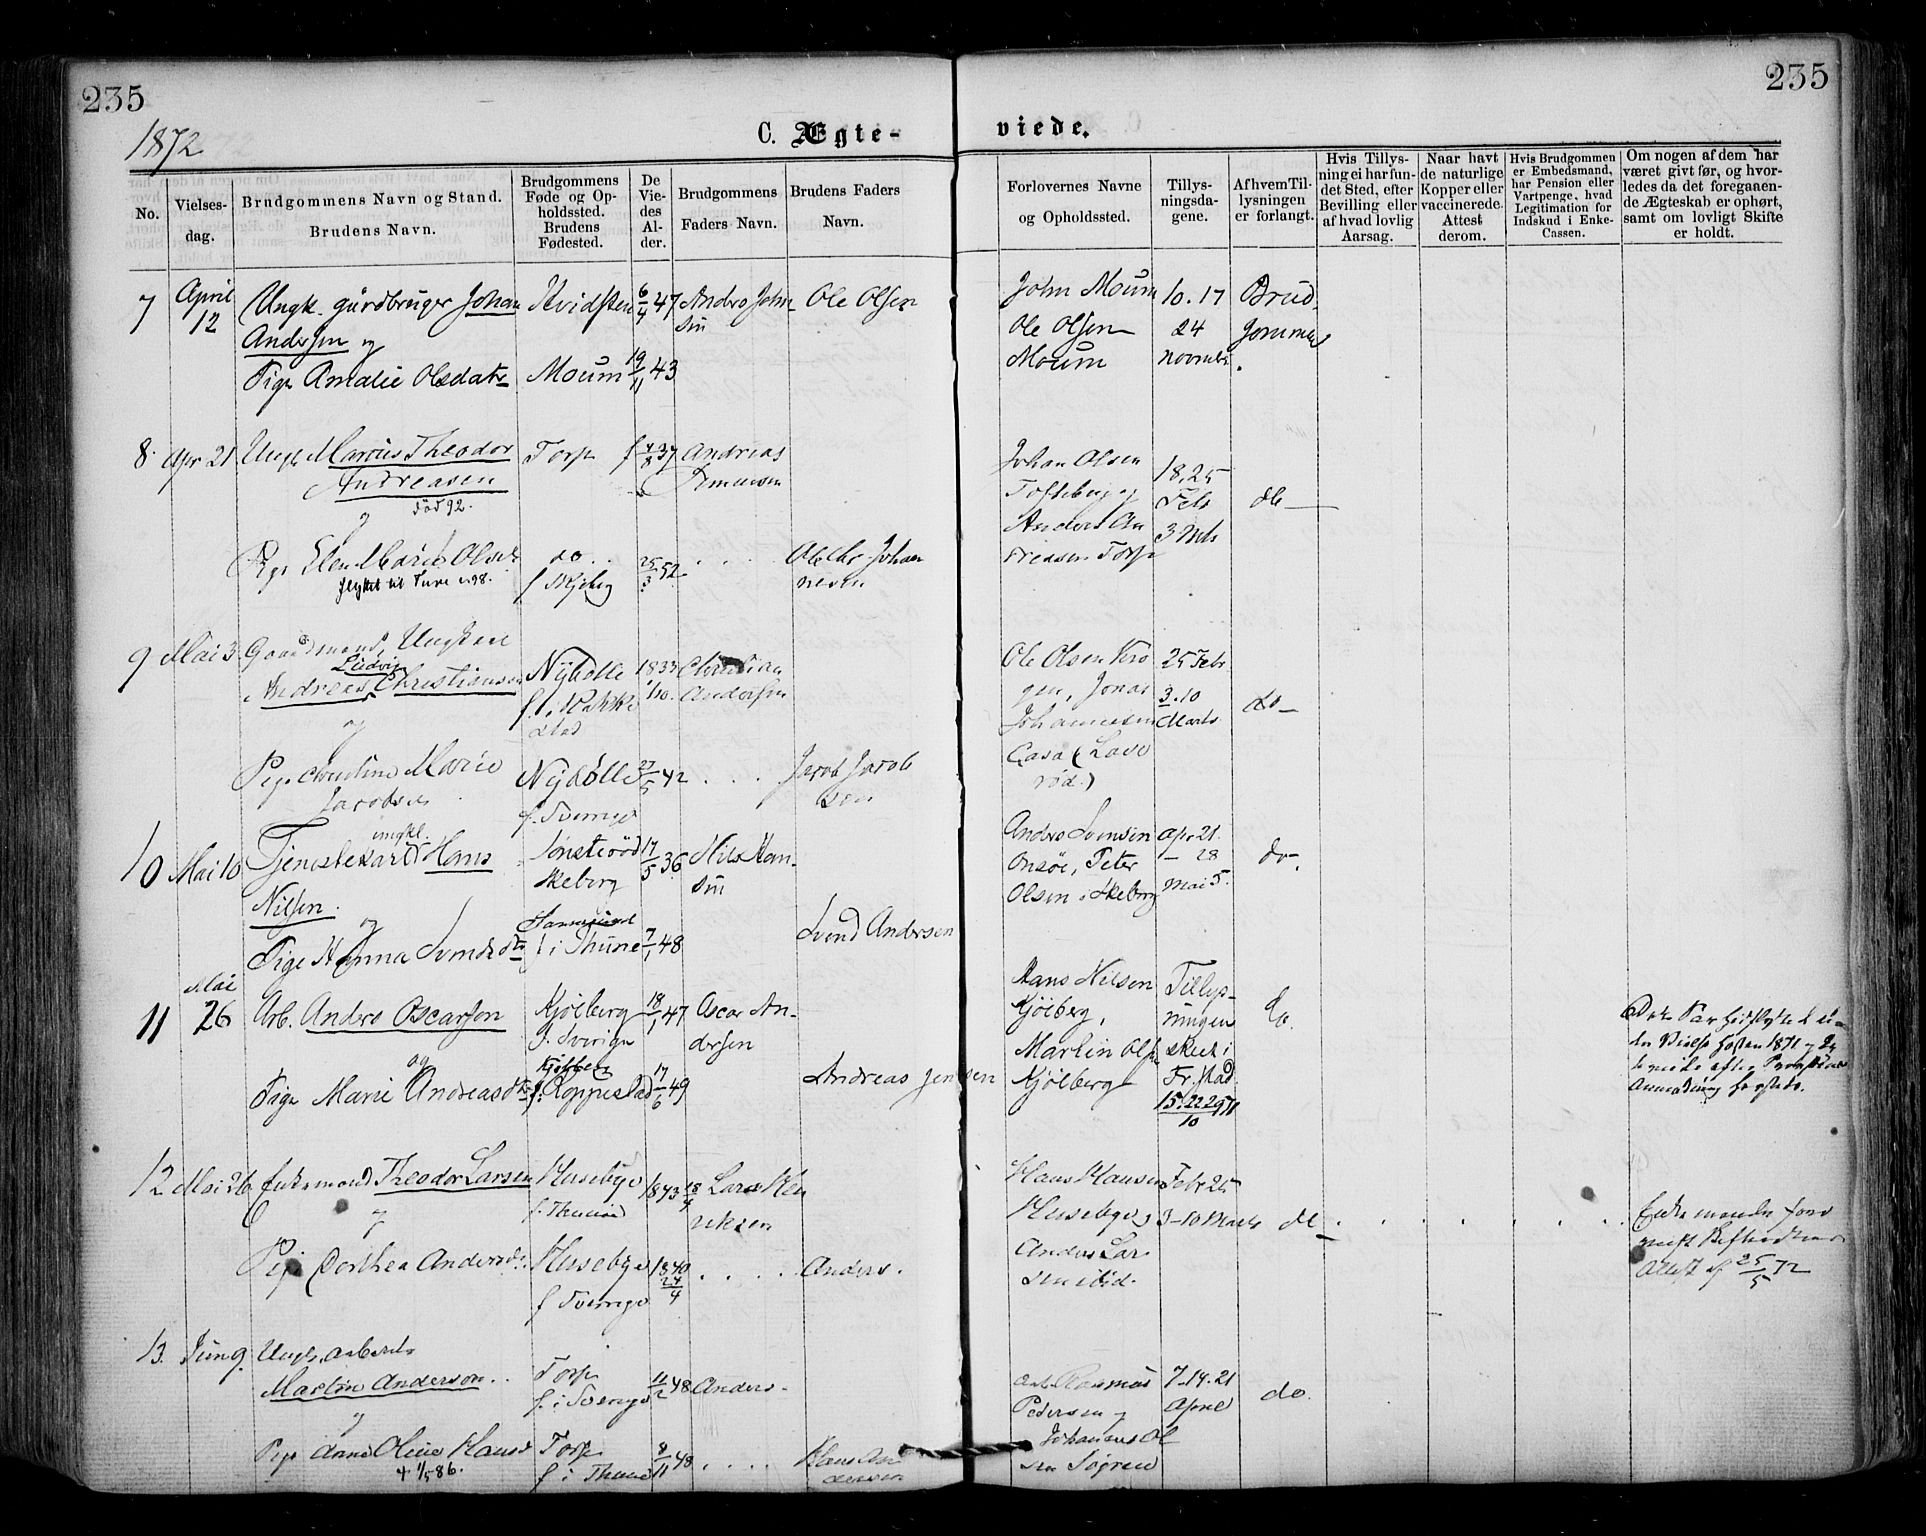 235
235
1872
C. Ægte-
viede.
No.
Vielses-
dag.
Brudgommens Navn og Stand.
Brudens Navn.
Brudgommens
Føde og Op-
holdssted.
Brudens
Fødested.
De
Vie-
des
Al-
der.
Brudgommens
Faders Navn.
Brudens Faders
Navn.
Forlovernes Navne
og Opholdssted.
Tillys-
ningsda-
gene.
Af hvem Til-
lysningen
er forlangt.
Hvis Tillys-
ning ei har fun-
det Sted, efter
Bevilling eller
af hvad lovlig
Aarsag.
Naar havt
de naturlige
Kopper eller
vaccinerede.
Attest
derom.
Hvis Brudgommen
er Embedsmand,
har Pension eller
Vartpenge, hvad
Legitimation for
Indskud i Enke-
Cassen.
Om nogen af dem har
været givt før, og hvor-
ledes da det foregaaen-
de Ægteskab er ophørt,
samt om lovligt Skifte
er holdt.
7
April
12
Ungk. gårdbruger Johan
Andersen og
Pige Amalie Olsdatr
Kvidsten
Moum
6/4 47
19/11 43
Anders John-
sen
Ole Olsen
John Moum
Ole Olsen
Moum
10. 17
24
novmbr.
Brud
gommen
8.
Apr 21
Ungk. Marius Theodor
Andreasen
død 92.
Pige Elen Marie Olsd
flyttet til Tune 98.
Torp
do
f Skjeberg
37
25/3 52
Andreas
Johan
nesen
Johan Olsen
Anders An
dreasen Torp
18, 25
Feb
3 Mrts
do
9
Mai 3
Gaardmand, Ungkarl
Ludvig
Andreas Christiansen
og
Pige Christine Marie
Jacobsen
Nybølle
f. i Rakke
stad
Nybølle
f. Sverige
1833
/10.
27/5 42
Christian
Andersen
Jacob Jacob
sen
Ole Olsen
Jonas
Johannesen
25 Febr
3. 10
Marts
do
10
Mai 10
ungkl.
Tjenestekarl Hans
Nilsen.
og
Pige Hanna Svendsdtr
Skeberg
f i Thune
17/5 36
7/1 48
Nils Han-
sen
Svend Andersen
Anders Svensen
Onsøe, Peter
Olsen i Skeberg
Apr 21.
- 28
Mai 5.
do
11
Mai
26
Arb. Anders Oscarsen
og
Pige Marie Andreasdtr
Kjølberg
f. Sverige
Kjølberg
18/1 47
17/6 49
Oscar An-
dersen
Andreas Jensen
Hans Nilsen
Kjølberg,
Martin Olsn
Kjølberg
Tillys-
ningen
skeet i
Fr.stad
15. 22 29 71
10
do.
12
Mai 26
Enkemand Theodor Larsen
og
Pige Dorthea Andersdr.
Husebye
f. Thune
Husebye
f Sverige
1843 18/4
1840
24/4
Lars Hen
riksen
Anders.
Hans Hansen
Husebye og
Anders Lar
sen ibid.
Febr 25
3-10 Marts
do
Enkemanden
Attest af 25/5 72
13.
Juni 9.
Ungk. arbeider
Martin Anderson.
og
Pige Anne Oline Hansd
4 1/5 86.
Torp
f. i Sverige
Torp
f i Thune
11/2 48
8/11 48
Anders
Hans An
dersen
Rasmus
Pedersen og
Johannes Ol
sen
7-14. 21
April
do.